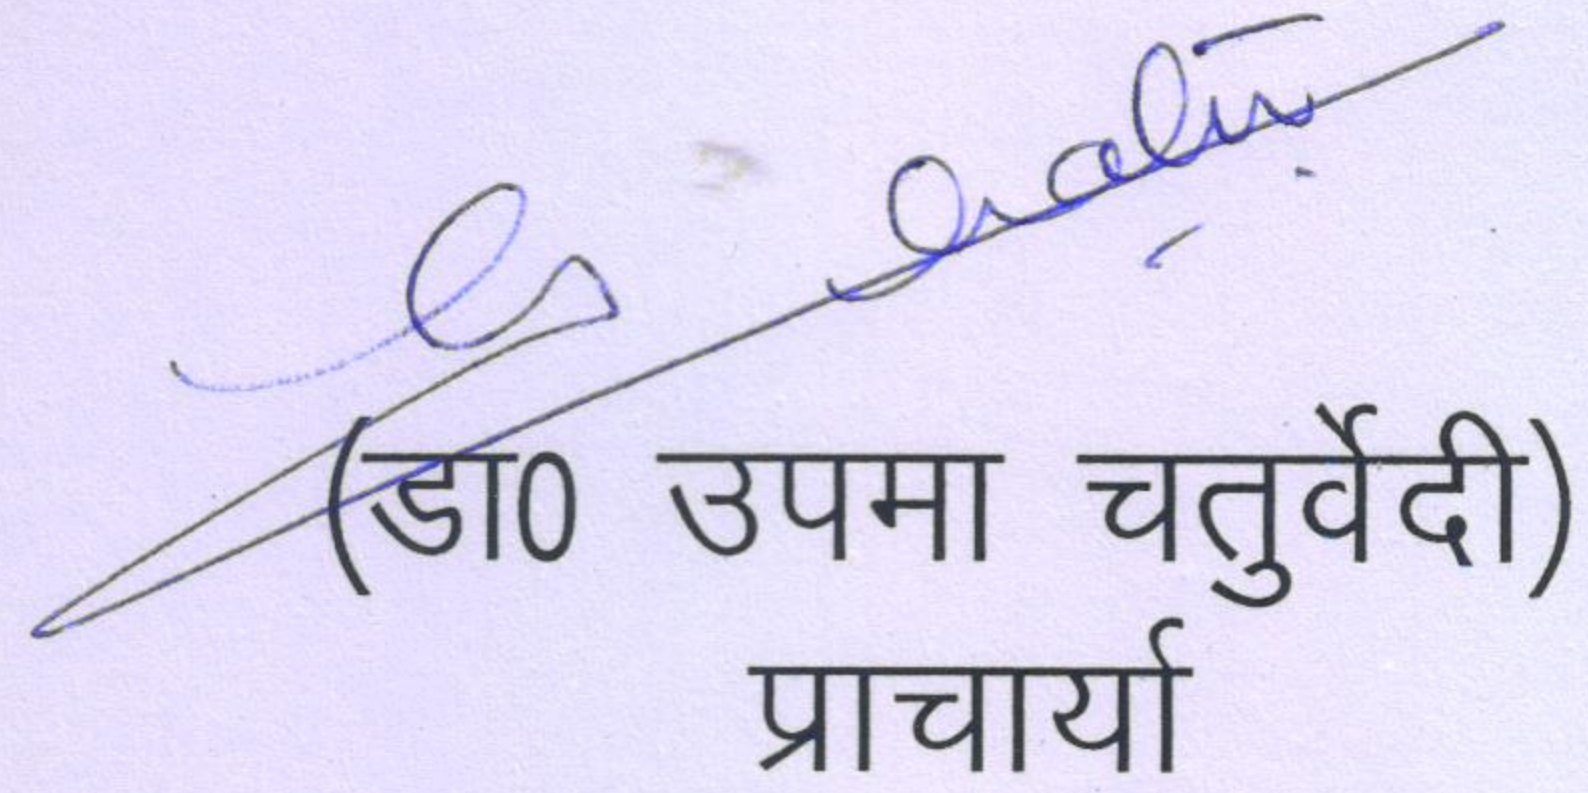 (डा0 उपमा चतुर्वेदी)
प्राचार्या